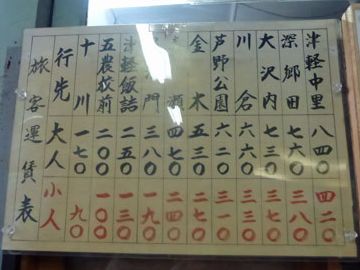 津軽中里 八四〇 四二〇
深郷田 七六〇 三八〇
大沢内 七三〇 三七〇
川倉 六六〇 三三〇
芦野公園 六二〇 三一〇
金木 五三〇 二七〇
瀬 四七〇 二四〇
門 三八〇 一九〇
津軽飯詰 二五〇 一三〇
五農校前 二〇〇 一〇〇
十川 一七〇 九〇
行先 大人 小人
旅客運賃表